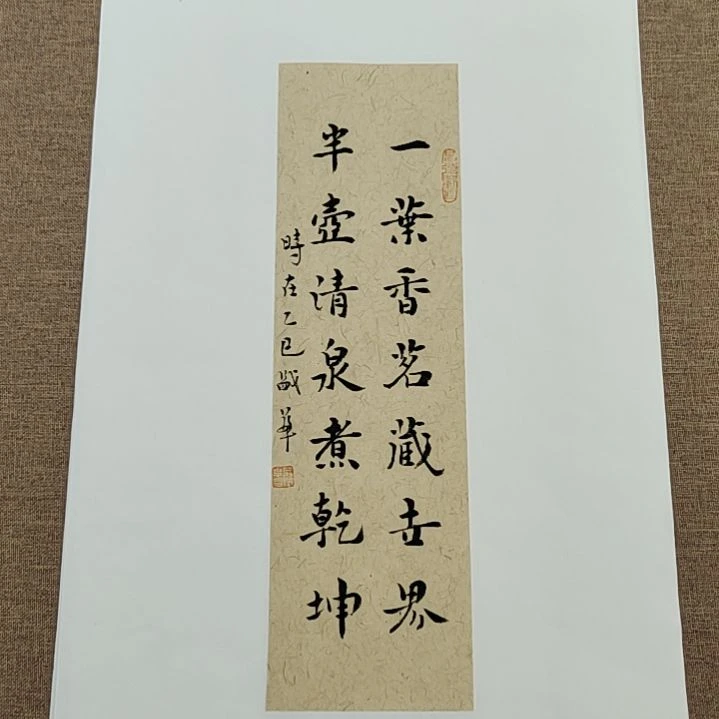 一葉香茗藏世界
半壺清泉煮乾坤
時在乙巳 華